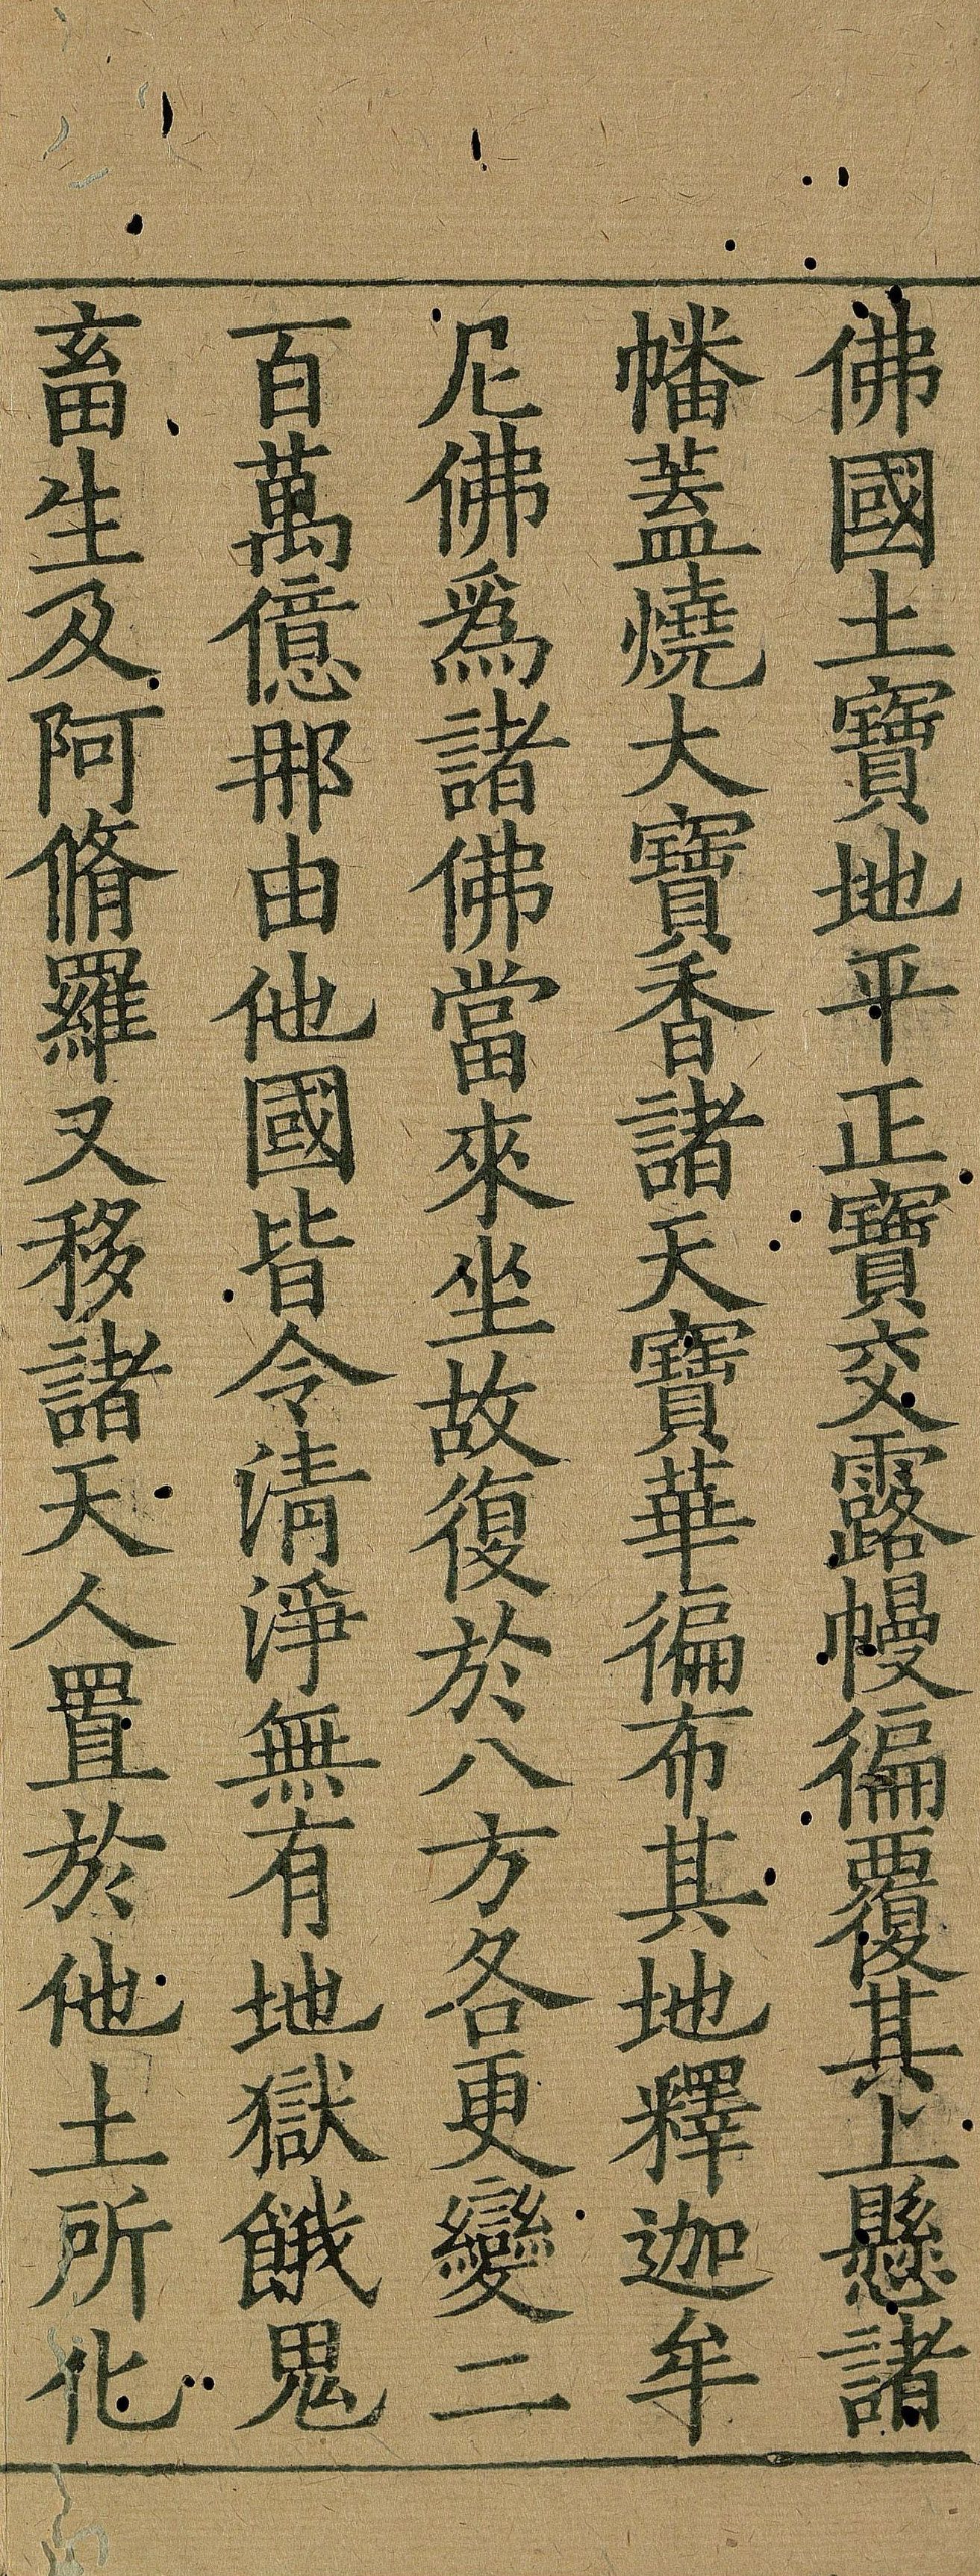 佛國土寶地平正寶交露幔徧覆其上懸諸
幡蓋燒大寶香諸天寶華徧布其地釋迦牟
尼佛爲諸佛當來坐故復於八方各更變二
百萬億那由他國皆令清淨無有地獄餓鬼
畜生及阿脩羅又移諸天人置於他土所化